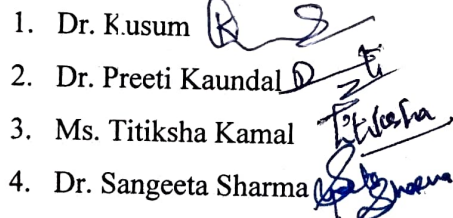 1. Dr. Kusum
2. Dr. Preeti Kaundal
3. Ms. Titiksha Kamal Titiksha
4. Dr. Sangeeta Sharma Sharma